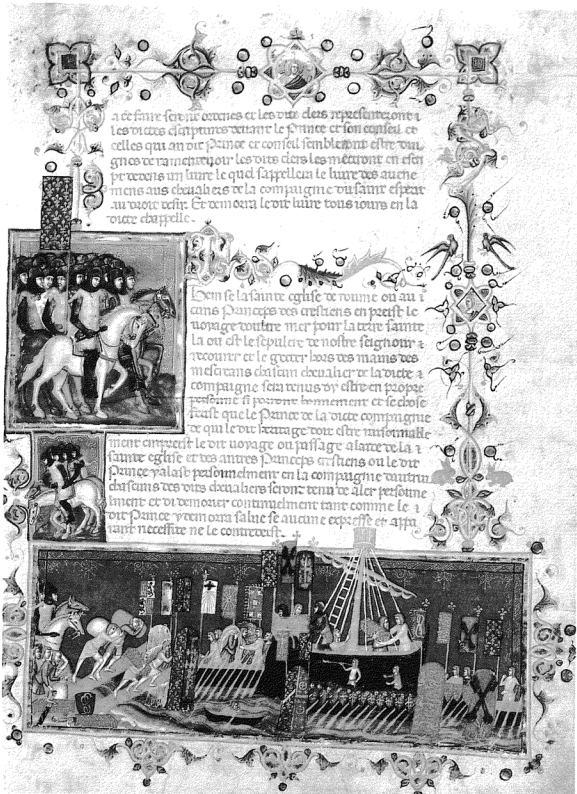 a ce faire seront ordenes et les dits clers representeront
les dictes escriptures devant le Prince et son conseil et
celles qui au dit Prince et conseil sembleront estre
gnes de ramentevoir les dits clers les metront en escri
pt dedens un livre le quel sappellera le livre des avene
mens aus chevaliers de la compaignie du saint esperit
au droit desir. Et demorra le dit livre tous iours en la
dicte chappelle.
Item se la sainte eglise de roume ou au
cuns Princeps des crestiens en preist le
voyage doultre mer pour la terre sainte
la ou est le sepulcre de nostre seignour
recouvrer et le getter hors des mains des
mescreans chascun chevalier de la dicte
compaignie sera tenus dy estre en propre
personne si porront bonnement et se chose
feust que le Prince de la dicte compaignie
de qui le dit voyage doit estre raisonnable
ment empreist le dit voyage ou passage a laide de la
sainte eglise et des autres Princeps crestiens ou le dit
Prince y alast personelment en la compaignie dautrui
chascuns des dits chevaliers seront tenu de aler personne
lment et di demorer continuelment tant comme le
dit Prince y demorra salve se aucune expresse et appa
rant necessite ne le contredeist.